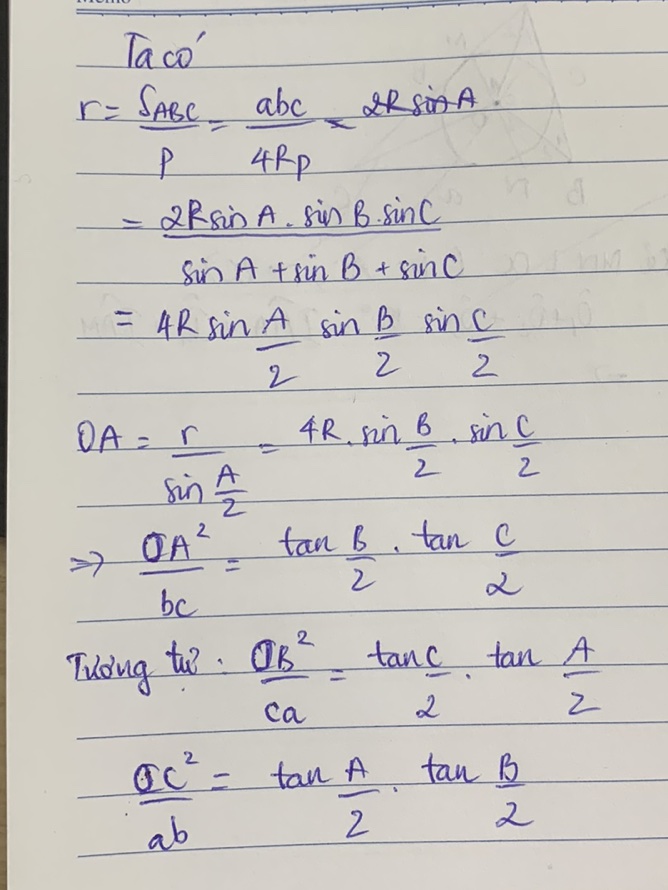 Ta có
r = S_ABC / p = abc / 4Rp = 2R sin A
= 2R sin A . sin B . sin C / sin A + sin B + sin C
= 4R sin A/2 sin B/2 sin C/2
OA = r / sin A/2 = 4R . sin B/2 . sin C/2
=> OA² / bc = tan B/2 . tan C/2
Tương tự : OB² / ca = tan C/2 . tan A/2
OC² / ab = tan A/2 . tan B/2